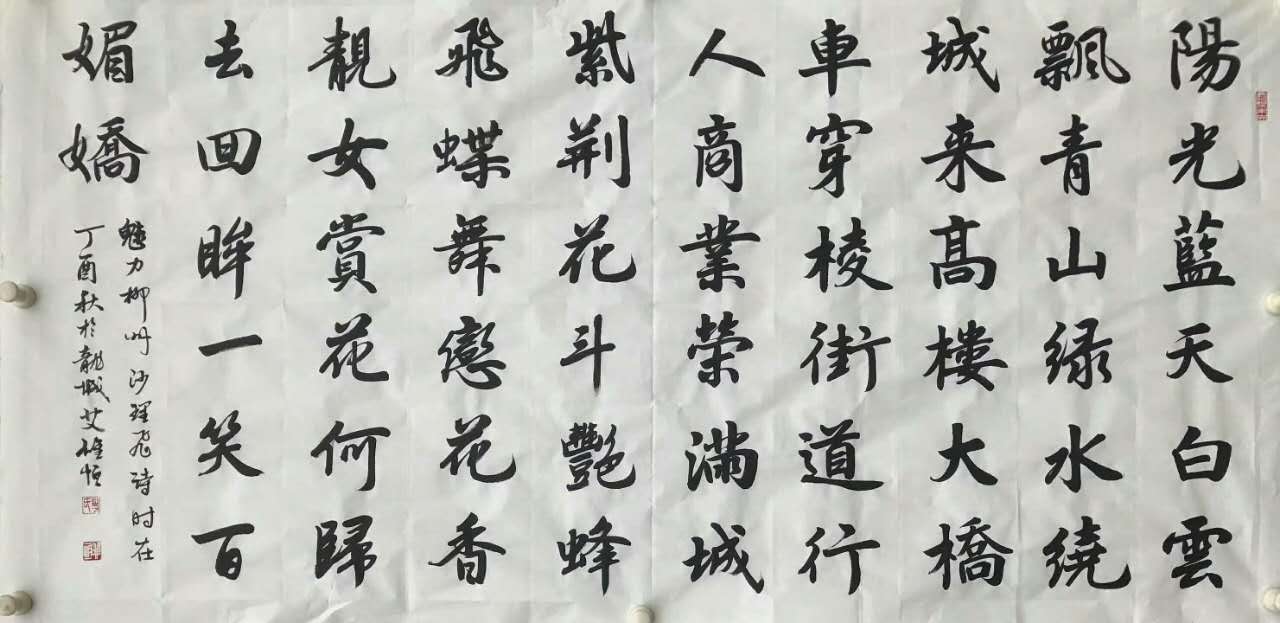 陽光藍天白雲
飄青山绿水繞
城来髙樓大橋
車穿棱街道行
人商業榮滿城
紫荆花斗艷蜂
飛蝶舞戀花香
靚女賞花何歸
去回眸一笑百
媚嬌
魅力柳州沙理飛诗时在
丁酉秋於龍城艾恒